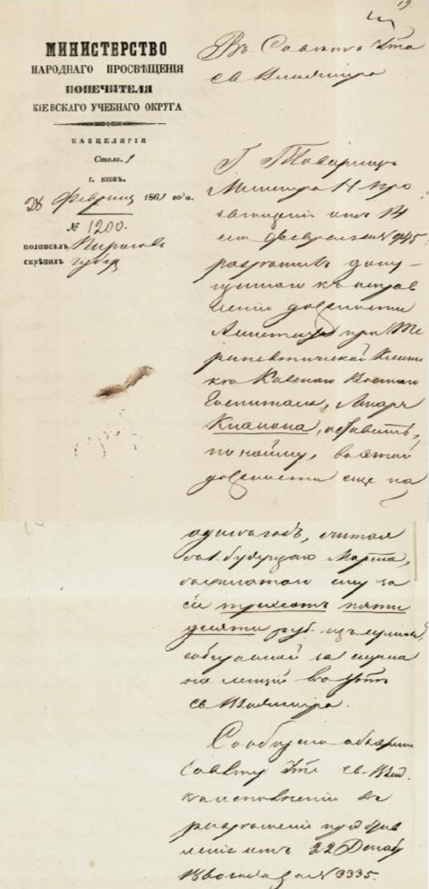 19
МИНИСТЕРСТВО
НАРОДНАГО ПРОСВѢЩЕНІЯ
ПОПЕЧИТЕЛЯ
КІЕВСКАГО УЧЕБНАГО ОКРУГА
КАНЦЕЛЯРІЯ
Столъ 1
г. КІЕВЪ.
28 Февраля 1861 года.
№ 1200.
подписалъ Пироговъ
скрѣпилъ
Въ Совѣтъ Ун-та
Св Владимира
Г. Товарищъ
Министра Н. Про
свѣщенія отъ 14
сего Февраля за № 945
разрѣшилъ допу-
щеннаго къ исправ
ленію должности
Ассистента при Те
рапевтической Клини
кѣ Кіевскаго Военнаго
Госпиталя, Лекаря
оставить,
по найму, въ этой
должности еще на
одинъ годъ, считая
съ 1 будущаго Марта,
съ платою ему за
сіе триста пяти
десяти руб. изъ суммы,
собираемой за слуша
ніе лекцій въ Ун-тѣ
Св Владимира.
Сообщаю объ этомъ
Совѣту Ун-та Св. Влад.
къ исполненію въ
разрѣшеніе представ
ленія отъ 22 Декабр
за № 3335.